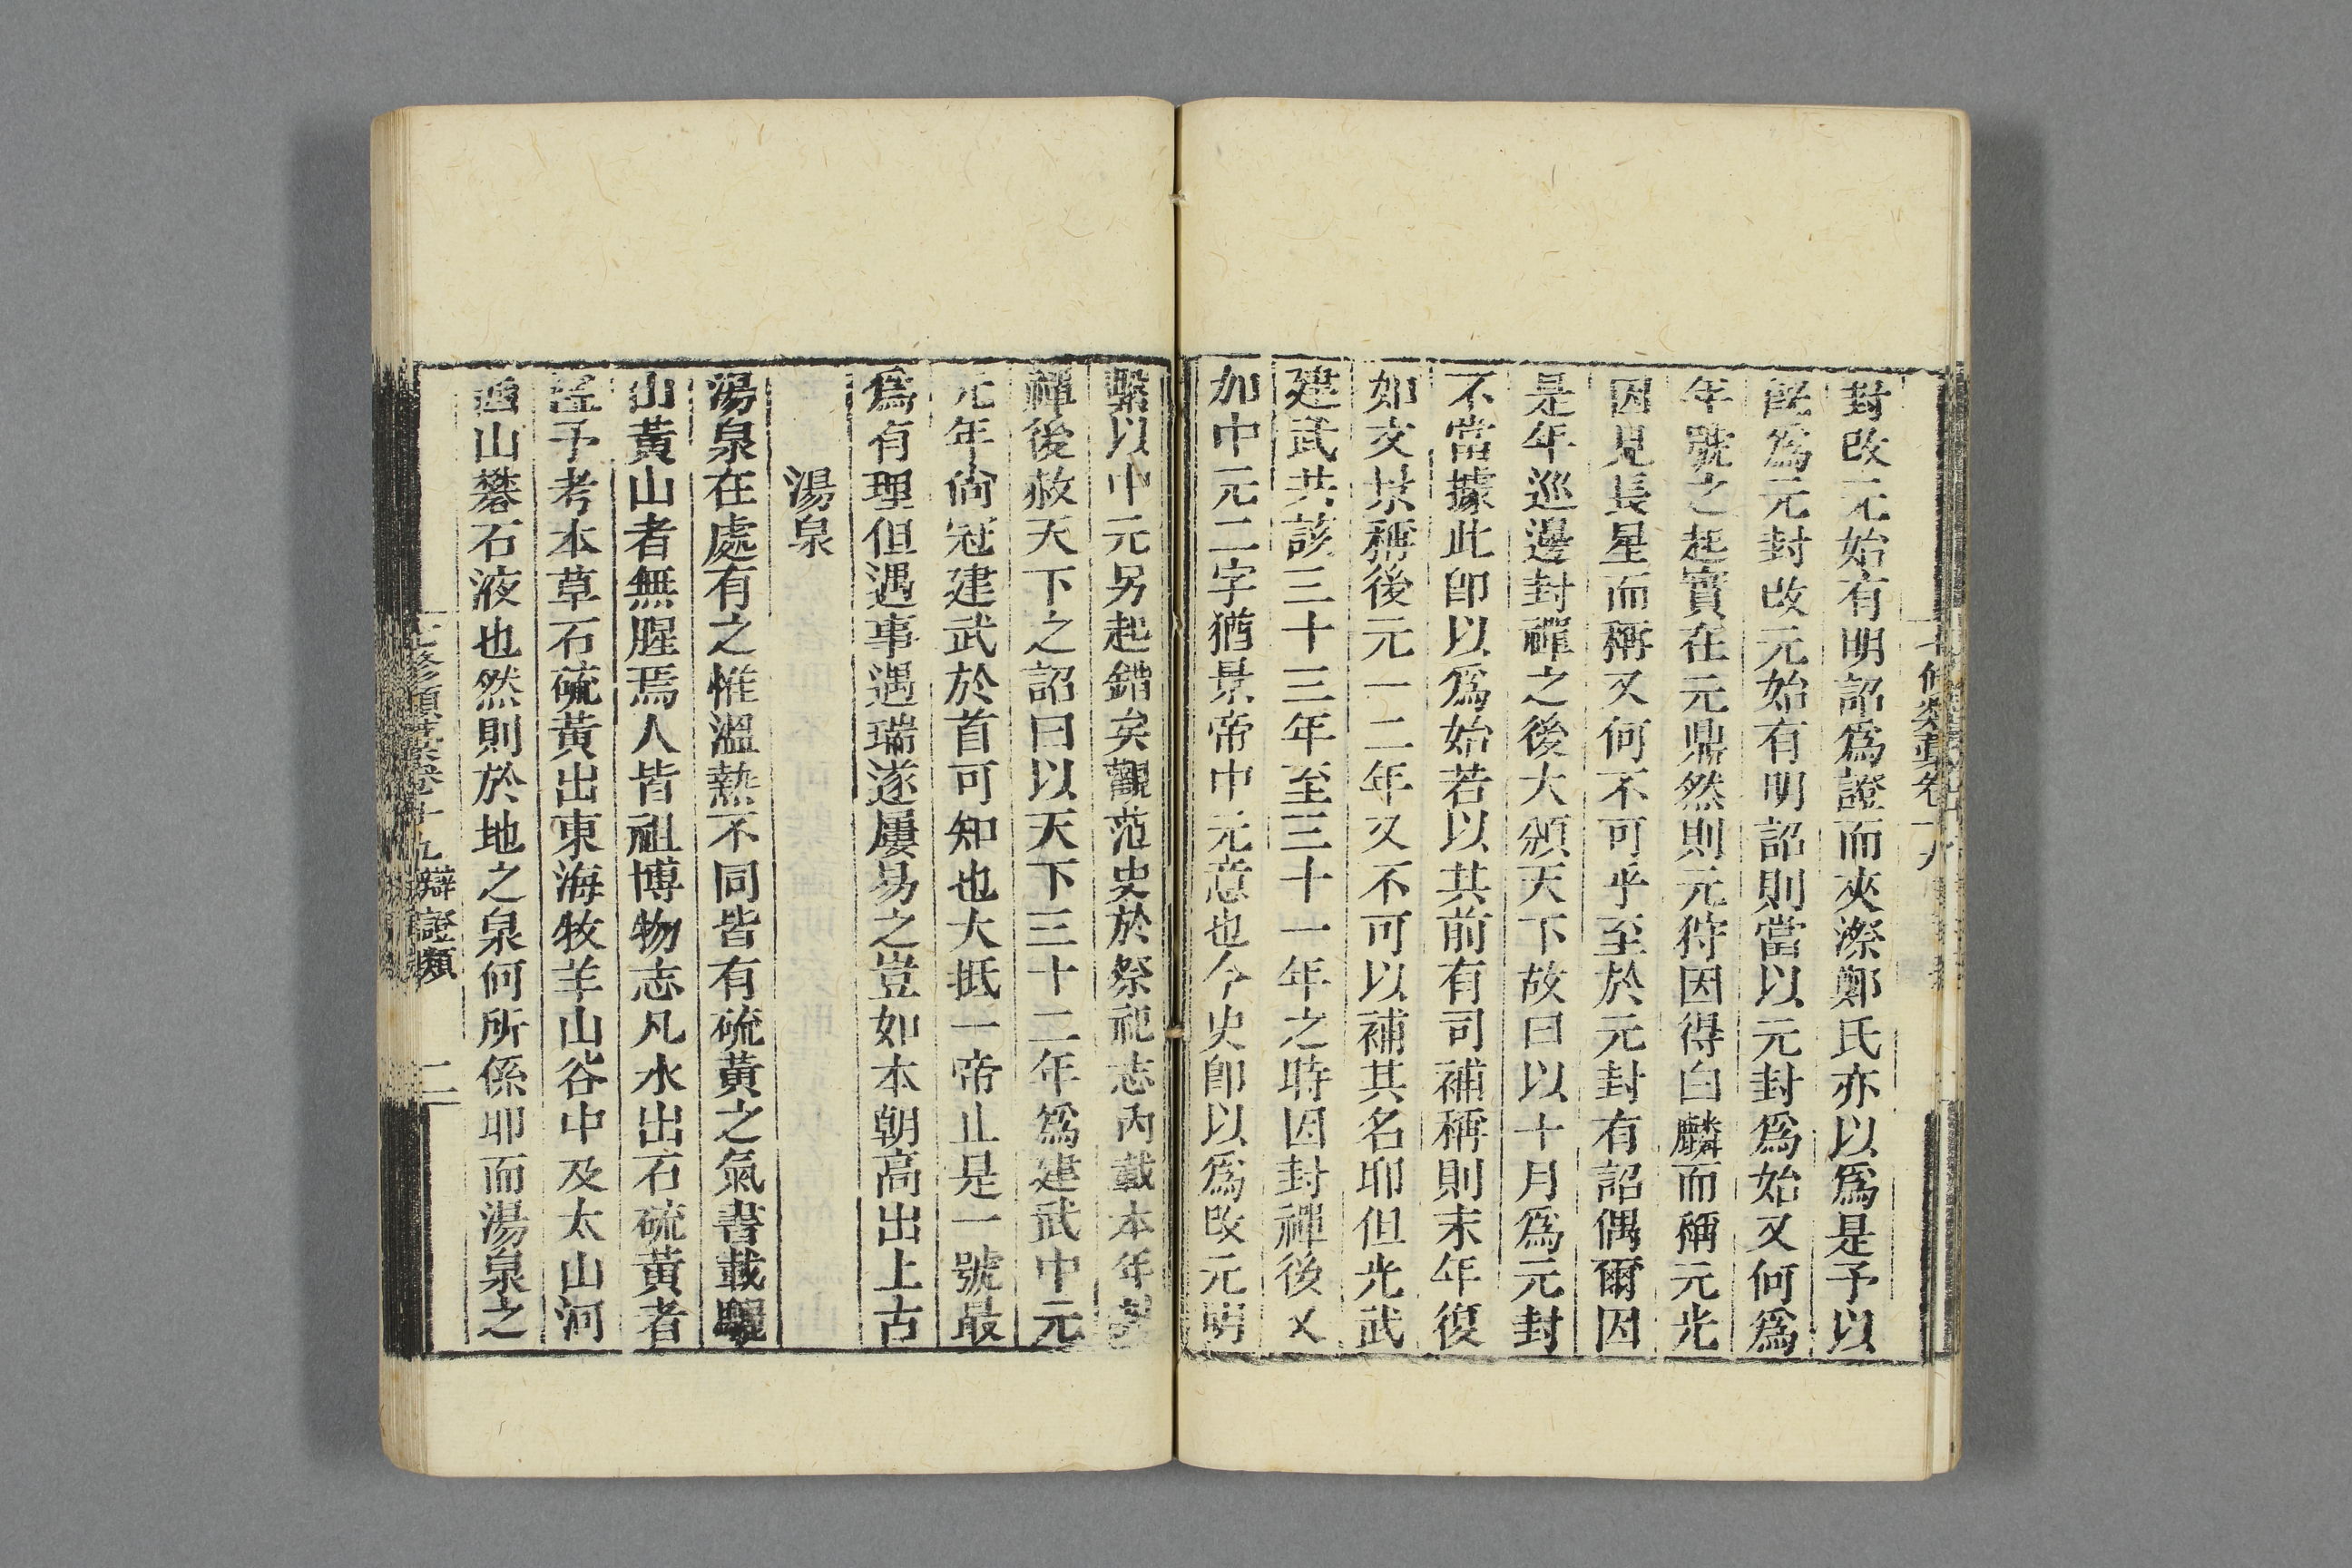 封改元始有明詔爲證而夾漈鄭氏亦以爲是予以
旣爲元封改元始有明詔則當以元封爲始又何爲
年號之起實在元鼎然則元狩因得白麟而稱元光
因見長星而稱又何不可乎至於元封有詔偶爾因
是年巡邊封禪之後大頒天下故曰以十月爲元封
不當據此卽以爲始若以其前有司補稱則末年復
如文景稱後元一二年又不可以補其名耶但光武
建武共該三十三年至三十一年之時因封禪後又
加中元二字猶景帝中元意也今史卽以爲改元明
繫以中元另起錯矣觀范史於祭祀志內載本年封
禪後赦天下之詔曰以天下三十二年爲建武中元
元年尙冠建武於首可知也大抵一帝止是一號最
爲有理但遇事遇瑞遂屢易之豈如本朝高出上古
湯泉
湯泉在處有之惟溫熱不同皆有硫黃之氣書載驪
山黃山者無腥焉人皆祖博物志凡水出石硫黃者
予考本草石硫黃出東海牧羊山谷中及太山河
西山礬石液也然則於地之泉何所係耶而湯泉之
七修類藁卷十九 辯證類 二